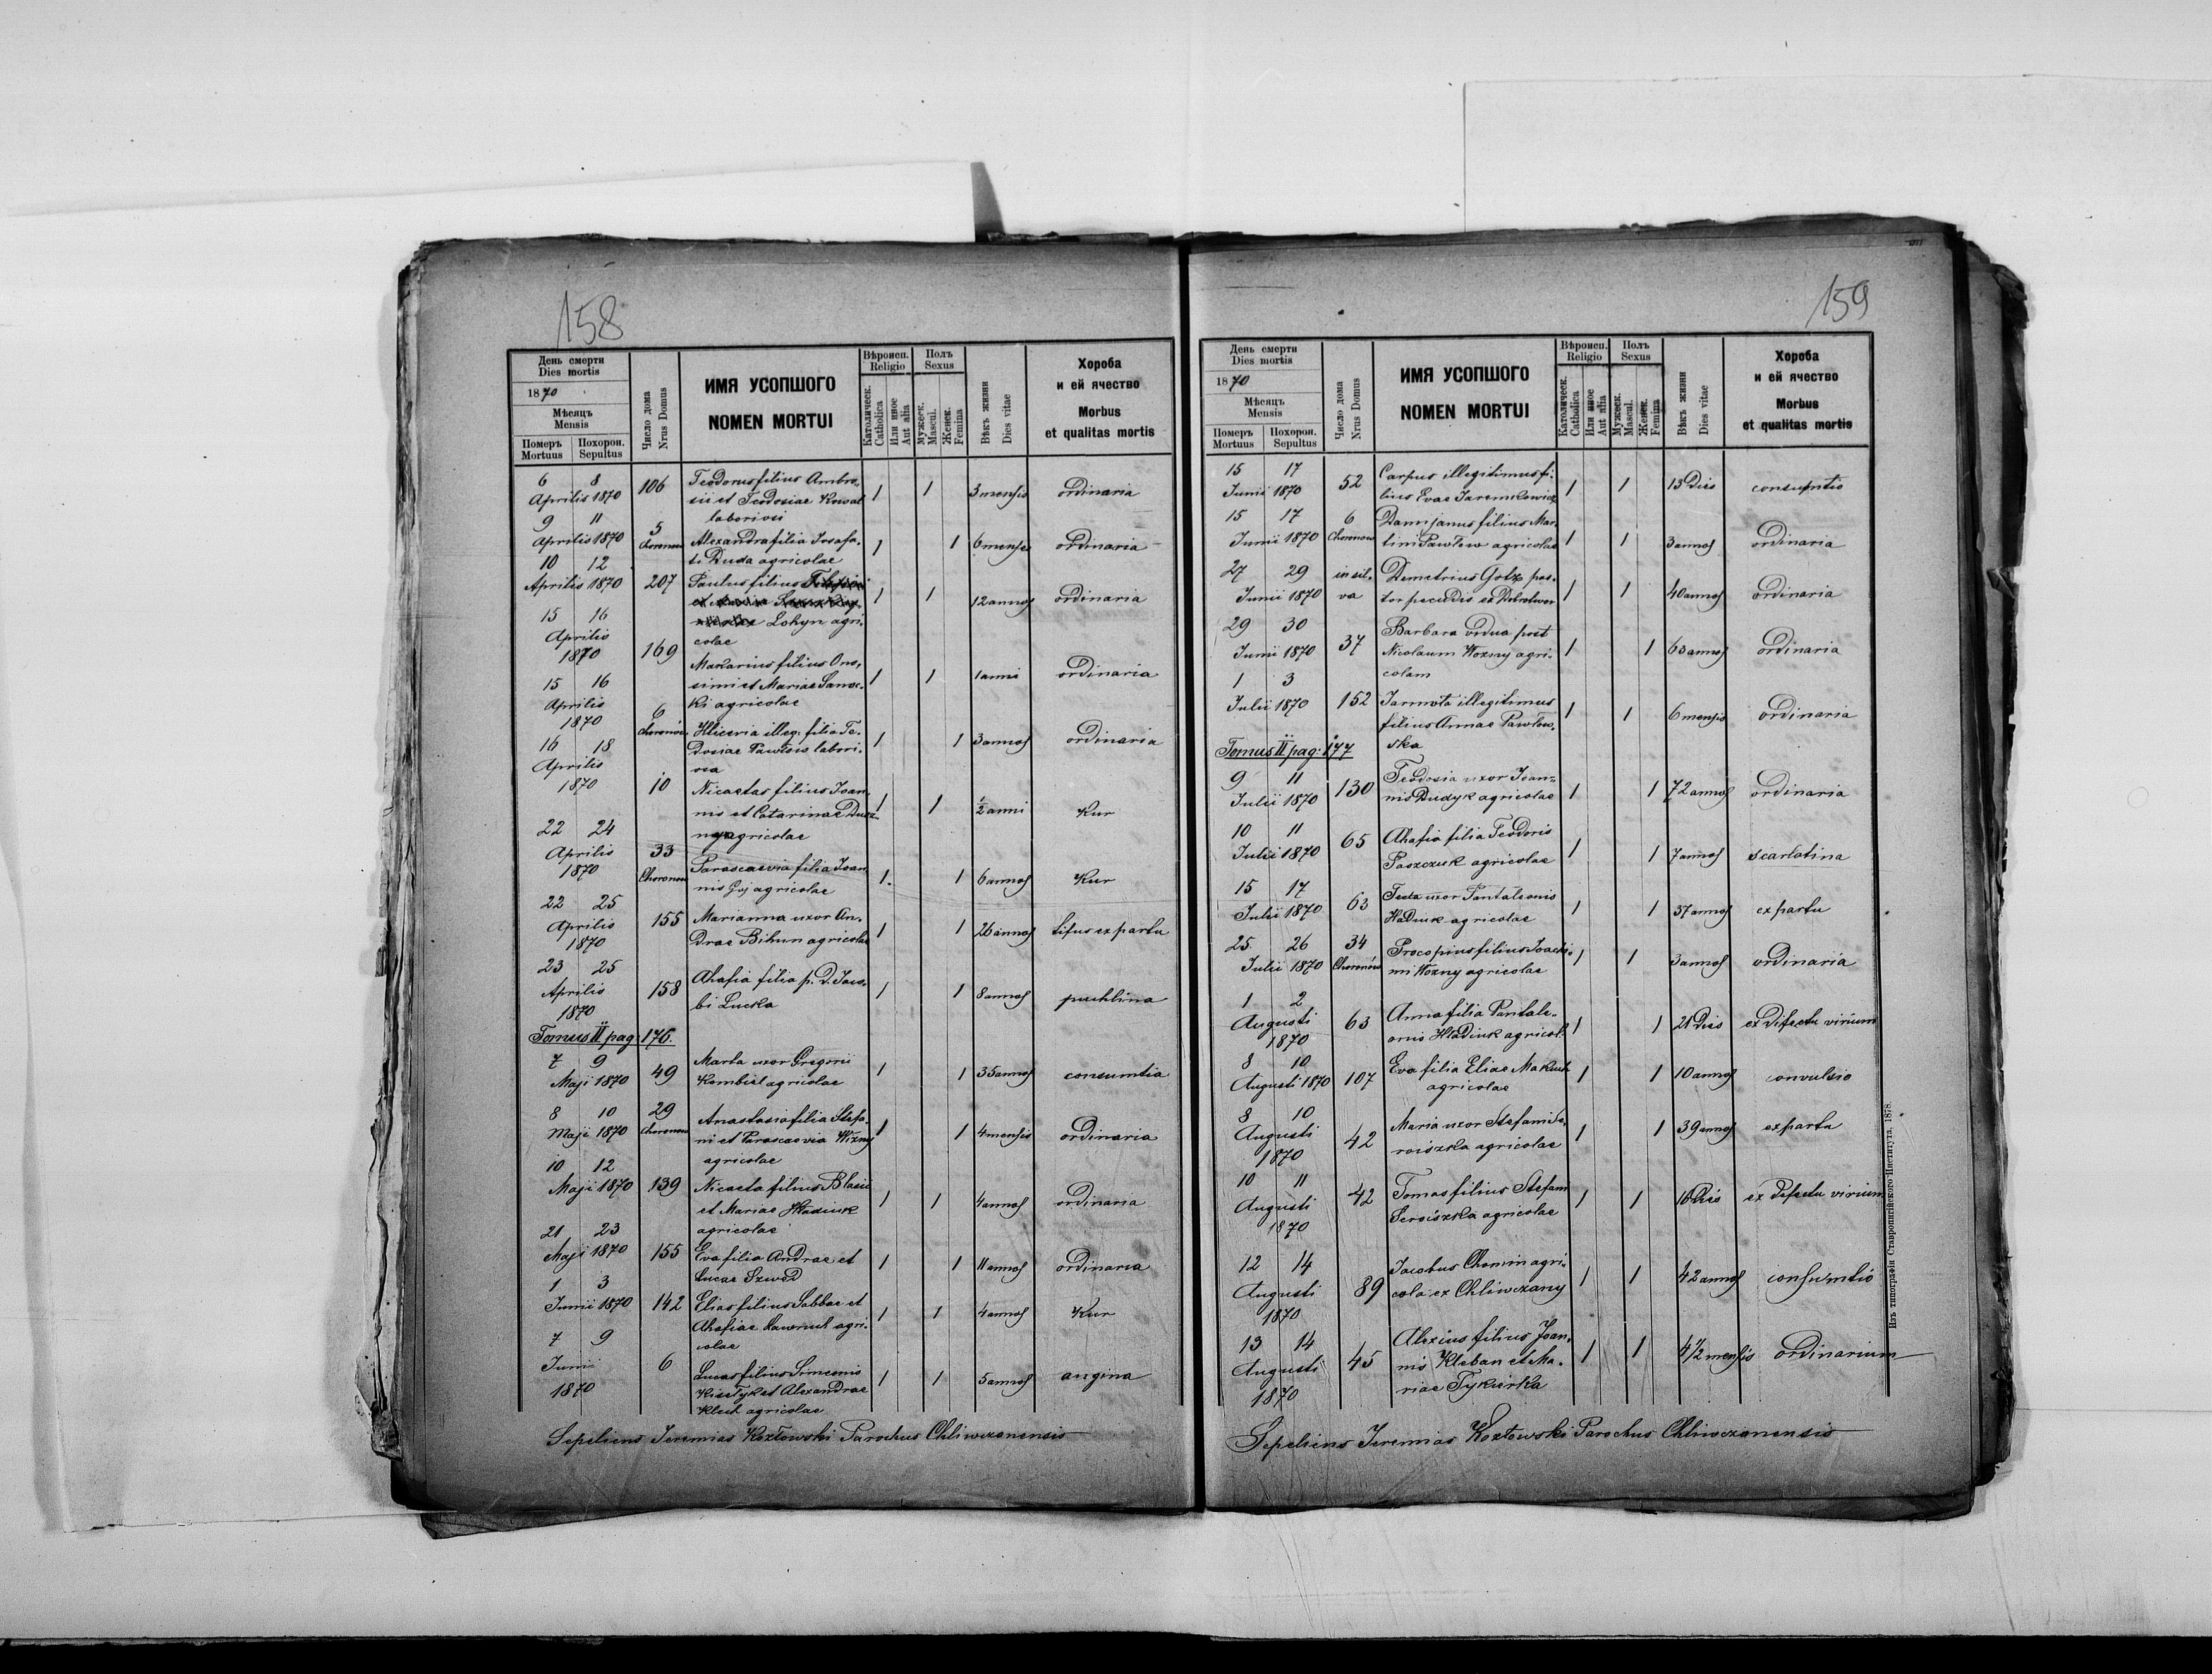 158
День смерти
Dies mortis
1870
Мѣсяцъ
Mensis
Померъ
Mortuus
Похорон.
Sepultus
Число дома
Nrus Domus
ИМЯ УСОПШОГО
NOMEN MORTUI
Вѣроисп.
Religio
Католическ.
Catholica
Или иное
Aut alia
Полъ
Sexus
Мужеск.
Mascul.
Женск.
Femina
Вѣкъ жизни
Dies vitae
Хороба
и ей ячество
Morbus
et qualitas mortis
6 8
Aprilis 1870 106 Teodorus filius Ambro-
sii et Teodosiae Kowal 1 1 3 mensis ordinaria
laboriosi
9 11
Aprilis 1870 5 Choronow Alexandra filia Josafa-
ti Duda agricolae 1 1 6 mensis ordinaria
10 12
Aprilis 1870 207 Paulus filius
1 1 12 annos ordinaria
Lohyn agri-
colae
15 16
Aprilis
1870 169 Makarius filius Ono-
simi et Mariae Sanoc- 1 1 1 anni ordinaria
ki agricolae
15 16
Aprilis
1870 6 Choronów Hliceria illeg. filia Te-
dosiae Pawlsis labori- 1 1 3 annos ordinaria
osa
16 18
Aprilis
1870 10 Nicaetas filius Joan-
nis et Catarinae 1 1 1/2 anni Kur
agricolae
22 24
Aprilis
1870 33 Choronow Parascaevia filia Joan-
nis Goj agricolae 1 1 6 annos Kur
22 25
Aprilis
1870 155 Marianna uxor An-
drae Bihun agricolae 1 1 26 annos tifus ex partu
23 25
Aprilis
1870 158 Ahafia filia p. d. Jaco-
bi Lucka 1 1 8 annos puchlina
Tomus II pag: 176.
7 9
Maji 1870 49 Marta uxor Gregorii
Kombiel agricolae 1 1 35 annos consumtia
8 10
Maji 1870 29 Choronow Anastasia filia Stefa-
ni et Parascaevia Wizny 1 1 4 mensis ordinaria
agricolae
10 12
Maji 1870 139 Nicaeta filius Blasii
et Mariae Hladiuk 1 1 4 annos ordinaria
agricolae
21 23
Maji 1870 155 Eva filia Andrae et
Lucae Szwed 1 1 11 annos ordinaria
1 3
Junii 1870 142 Elias filius Sabbae et
Ahafiae Hawrych agri- 1 1 4 annos Kur
colae
7 9
Junii
1870 6 Lucas filius Simeonis
Kisetyk et Alexandrae 1 1 5 annos angina
Kluch agricolae
Sepeliens Jeremias Kozłowski Parochus Chliwczanensis
159
День смерти
Dies mortis
1870
Мѣсяцъ
Mensis
Померъ
Mortuus
Похорон.
Sepultus
Число дома
Nrus Domus
ИМЯ УСОПШОГО
NOMEN MORTUI
Вѣроисп.
Religio
Католическ.
Catholica
Или иное
Aut alia
Полъ
Sexus
Мужеск.
Mascul.
Женск.
Femina
Вѣкъ жизни
Dies vitae
Хороба
и ей ячество
Morbus
et qualitas mortis
15 17
Junii 1870 52 Carpus illegitimus fi-
lius Evae Jaremkowicz 1 1 13 Dies consumtio
15 17
Junii 1870 6 Choronow Damijanus filius Mar-
tini Pawlow agricolae 1 1 3 annos ordinaria
27 29
Junii 1870 in sil-
va Demetrius Gotz pas-
tor pecudis ex Dobrotwor 1 1 40 annos ordinaria
29 30
Junii 1870 37 Barbara vidua post
Nicolaum Wozny agri- 1 1 63 annos ordinaria
colam
1 3
Julii 1870 152 Jarmota illegitimus
filius Annae Pawlow- 1 1 6 mensis ordinaria
ska
Tomus II pag: 177
9 11
Julii 1870 130 Teodosia uxor Joan-
nis Dudyk agricolae 1 1 72 annos ordinaria
10 11
Julii 1870 65 Ahafia filia Teodoris
Paszczuk agricolae 1 1 7 annos scarlatina
15 17
Julii 1870 63 Tecla uxor Pantaleonis
Hladiuk agricolae 1 1 37 annos ex partu
25 26
Julii 1870 34 Choronów Procopius filius Joachi-
mi Wozny agricolae 1 1 3 annos ordinaria
1 2
Augusti
1870 63 Anna filia Pantale-
onis Hladiuk agricol. 1 1 21 Dies ex difectu virium
8 10
Augusti 1870 107 Eva filia Eliae Makuch
agricolae 1 1 10 annos convulsio
8 10
Augusti
1870 42 Maria uxor Stefani Se-
roiszka agricolae 1 1 39 annos ex partu
10 11
Augusti
1870 42 Tomas filius Stefani
Seroiszka agricolae 1 1 Dies ex defectu virium
12 14
Augusti
1870 89 Jacobus Chomin agri-
cola ex Chliwczany 1 1 42 annos consumtio
13 14
Augusti
1870 45 Alexius filius Joan-
nis Kleban et Ma- 1 1 4 1/2 mensis ordinarium
riae Tykierka
Sepeliens Jeremias Kozłowski Parochus Chliwczanensis
Изъ типографіи Ставропигійского Института, 1878.